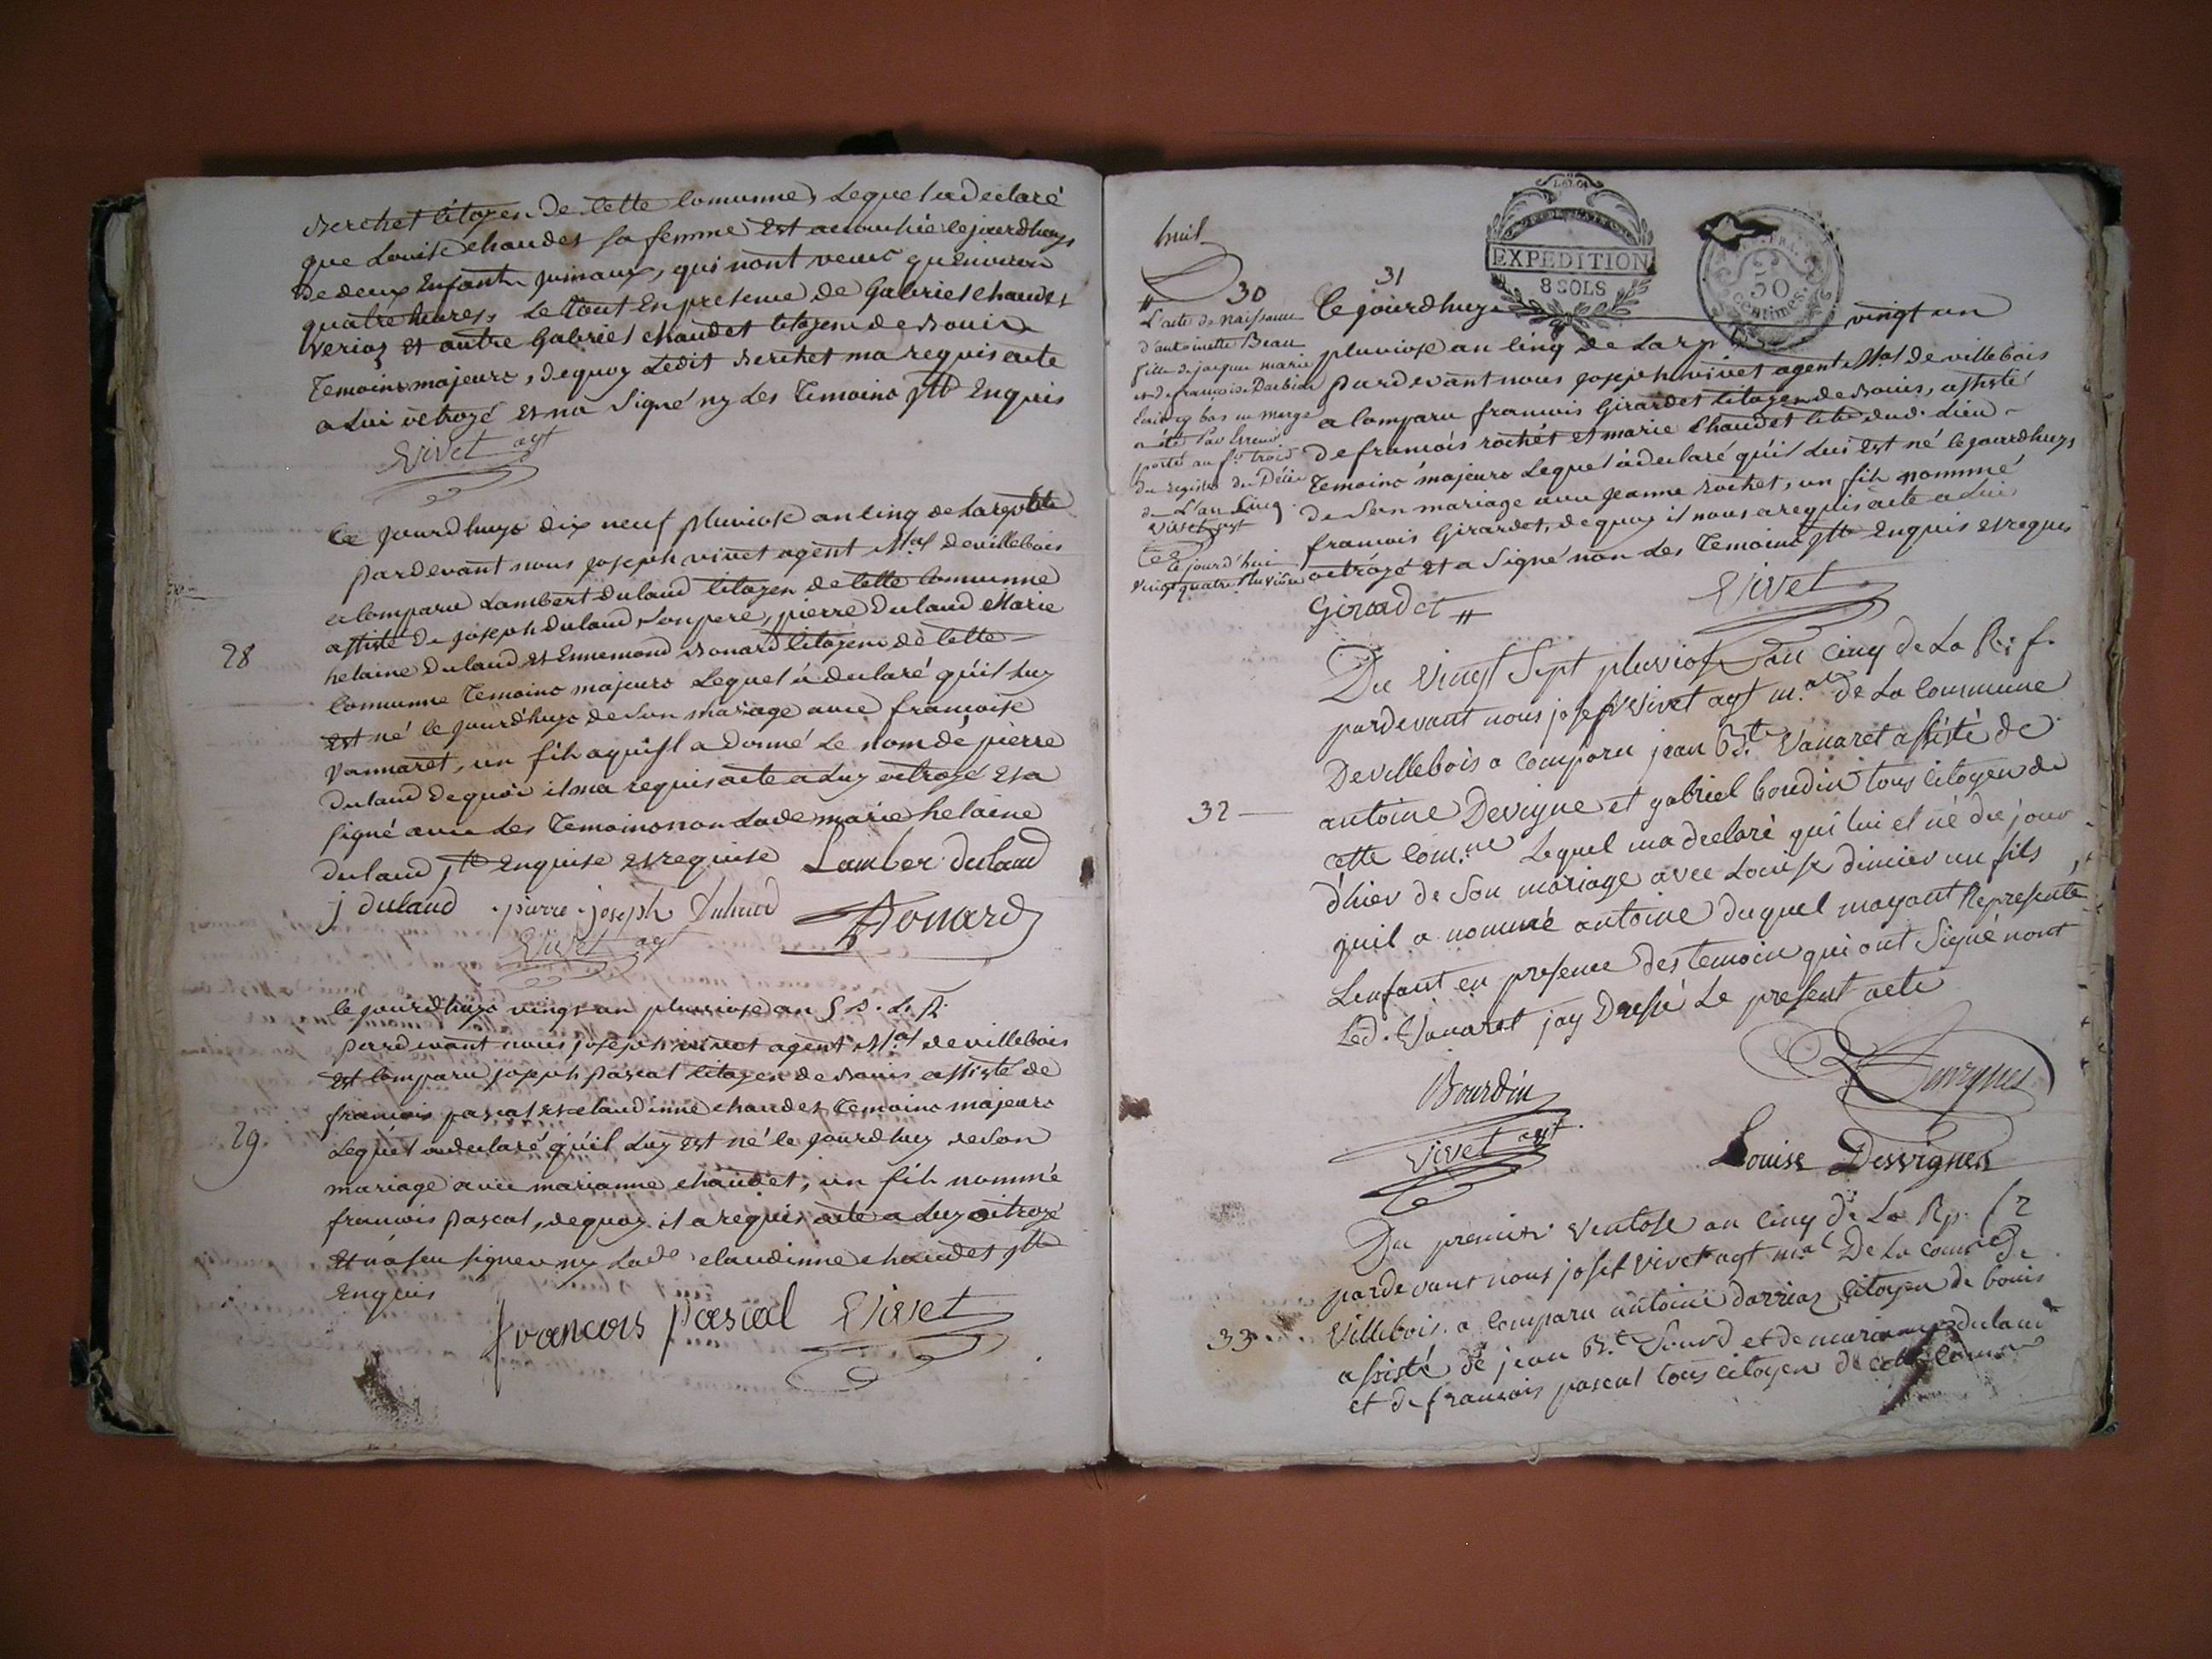 Berchet citoyen de cette commune, Lequel a declaré
que Louise chaudet sa femme est accouchée cejourdhuy
de deux Enfants jumaux, qui nont vecus quenviron
quatre heures, Le tout En presence de Gabriel chaudet
verioz et autre Gabriel chaudet citoyens de Bouis
Temoins majeurs, dequoy Ledit Berchet ma requis acte
a Lui octroyé et na Signé ny Les Temoins Enquis
Vivet agt
28
Ce jourdhuy dix neuf pluviose an cinq de La repble
pardevant nous joseph vivet agent Mal de villebois
a comparu Lambert dulaud citoyen de cette commune
assisté de joseph dulaud, son pere, pierre dulaud Marie
helaine dulaud et Ennemond Bonard citoyens de cette
commune Temoins majeurs Lequel a declaré qu'il Luy
est né ce jourd'huy de son mariage avec francoise
vannaret, un fils aquiJl a donné Le nom de pierre
dulaud dequoi il ma requis acte a Luy octroyé et a
signé avec Les Temoins non Lade marie helaine
dulaud Enquise et requise Lamber dulaud
j dulaud pierre joseph Dulaud
Bonard
Vivet agt
29.
Ce jourdhuy vingt un pluviose an 5 D. L. R.
pardevant nous joseph vivet agent Mal de villebois
est comparu joseph pascal citoyen de Bouis assisté de
francois pascal et claudinne chaudet Temoins majeurs
Lequel a declaré qu'il Luy est né ce jourdhuy de son
mariage avec marianne chaudet, un fils nommé
francois pascal, dequoy il a requis acte a Luy octroyé
et na seu signer ny Lade claudinne chaudet
Enquis
francois pascal Vivet
huit
30
L'acte de Naissance
d'antoinette Beau
fille de jacque marie
et de francoise Darbier
Ecrit cy bas en marge
a été Par Erreur
porté au fo trois
du registre du Décés
de L'an Cinq.
vivet agt
Ce jourd'hui
vingt quatre Pluviôse
LA LOI
EXPEDITION
8 SOLS
50
centimes
31
Ce jourdhuy vingt un
pluviose an cinq de La rep
pardevant nous joseph vivet agent Mal de villebois
a comparu francois Girardet citoyen de Bouis, assisté
de francois rochet et marie Chaudet cite dud. Lieu
Temoins majeurs Lequel a declaré qu'il Lui est né ce jourdhuy
de son mariage avec jeanne rochet, un fils nommé
francois Girardet, dequoy il nous a requis acte a Lui
octroyé et a Signé non Les Temoins Enquis et requis
Girardet Vivet
32
Du vingt Sept pluviose an cinq de La R. f.
pardevant nous josef vivet agt m.al de La Commune
De villebois a comparu jean Bte Vanaret assisté de
antoine Devigne et gabriel bondin tous citoyen de
cette com.ne Lequel ma declaré qui lui et né du jour
d'hier de Son mariage avec Louise dimier un fils
quil a nommé antoine duquel mayant Représenté
Lenfant en presence des temoin qui ont Signé nont
Led. Vanaret jay Dressé Le present acte
Bourdin Devignes
Vivet agt.
Louise Desvignes
33
Du premier ventose an cinq de La Rp. f
pardevant nous josef vivet agt m.al De La comne de
villebois. a comparu antoine darrioz citoyen de bouis
assisté de jean Bt. Sourd et de marianne dulaud
et de francois pascal tous citoyen de cette comne